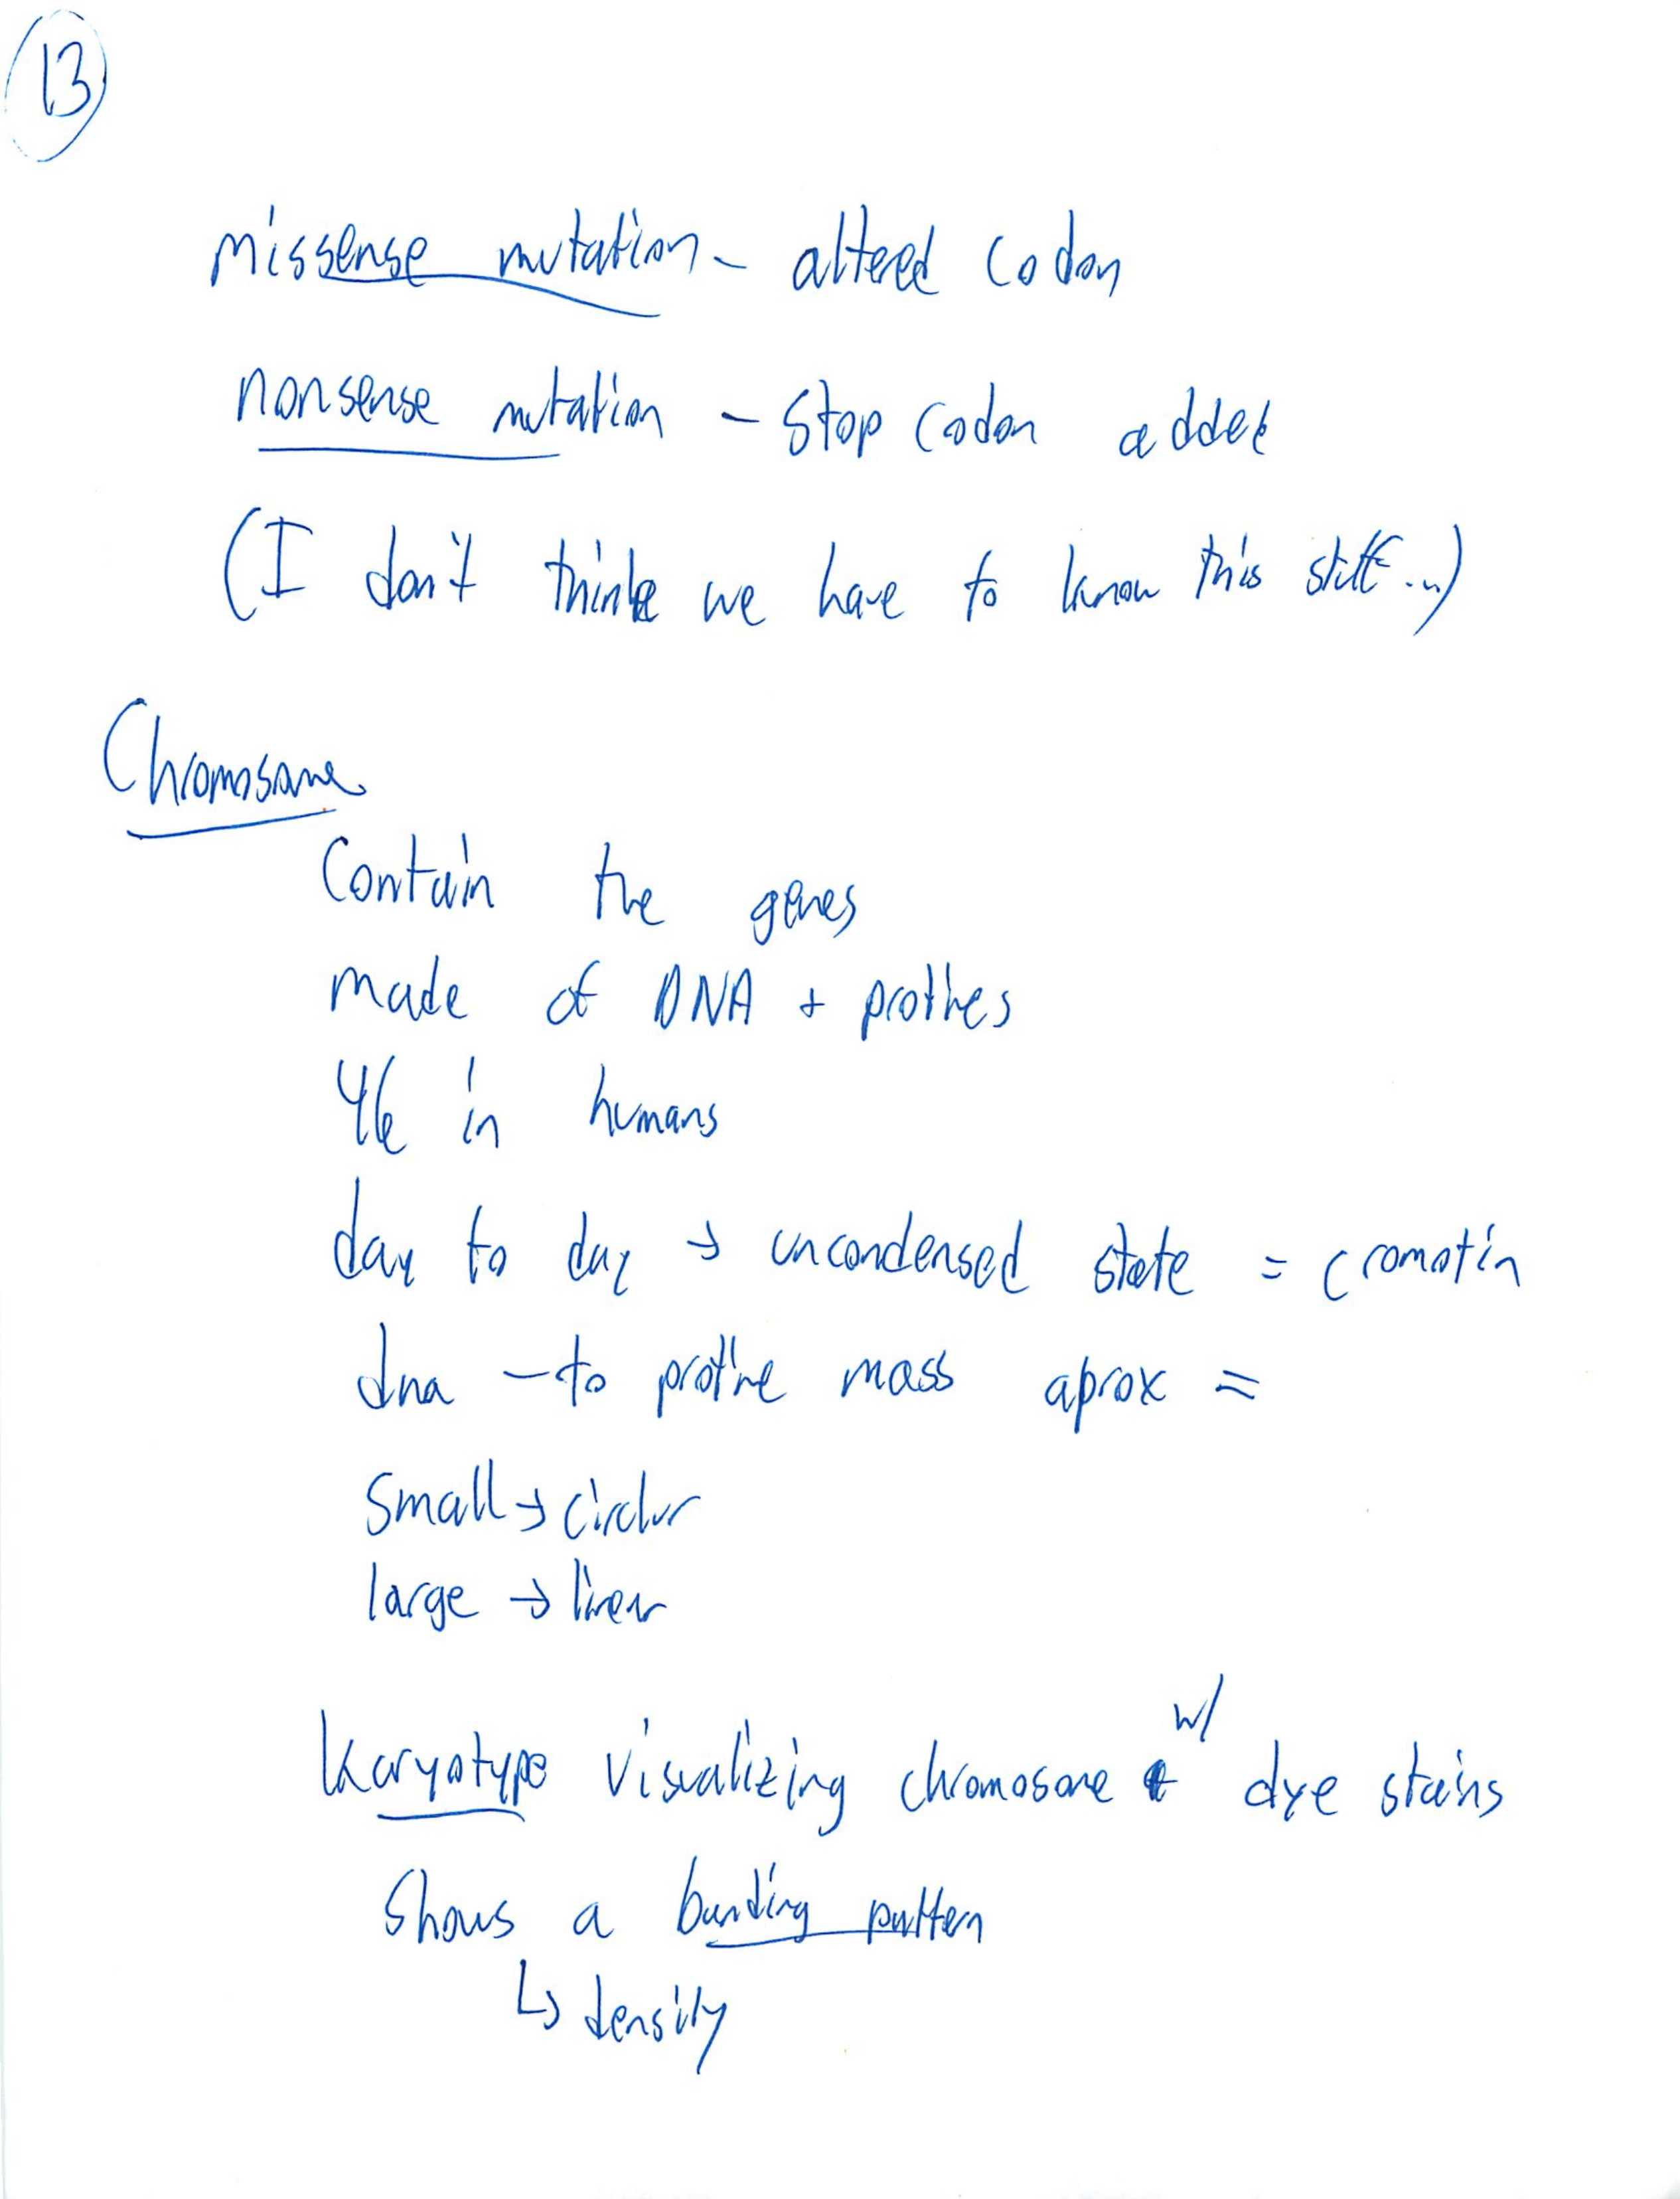 13
missense mutation - altered codon
nonsense mutation - stop codon added
(I don't think we have to know this stuff...)
Chromosome
Contain the genes
made of DNA + protines
46 in humans
day to day → uncondensed state = cromatin
dna - to protine mass aprox =
small → circlur
large → linear
Karyotype visualizing chromosome w/ dye stains
Shows a banding pattern
↳ density